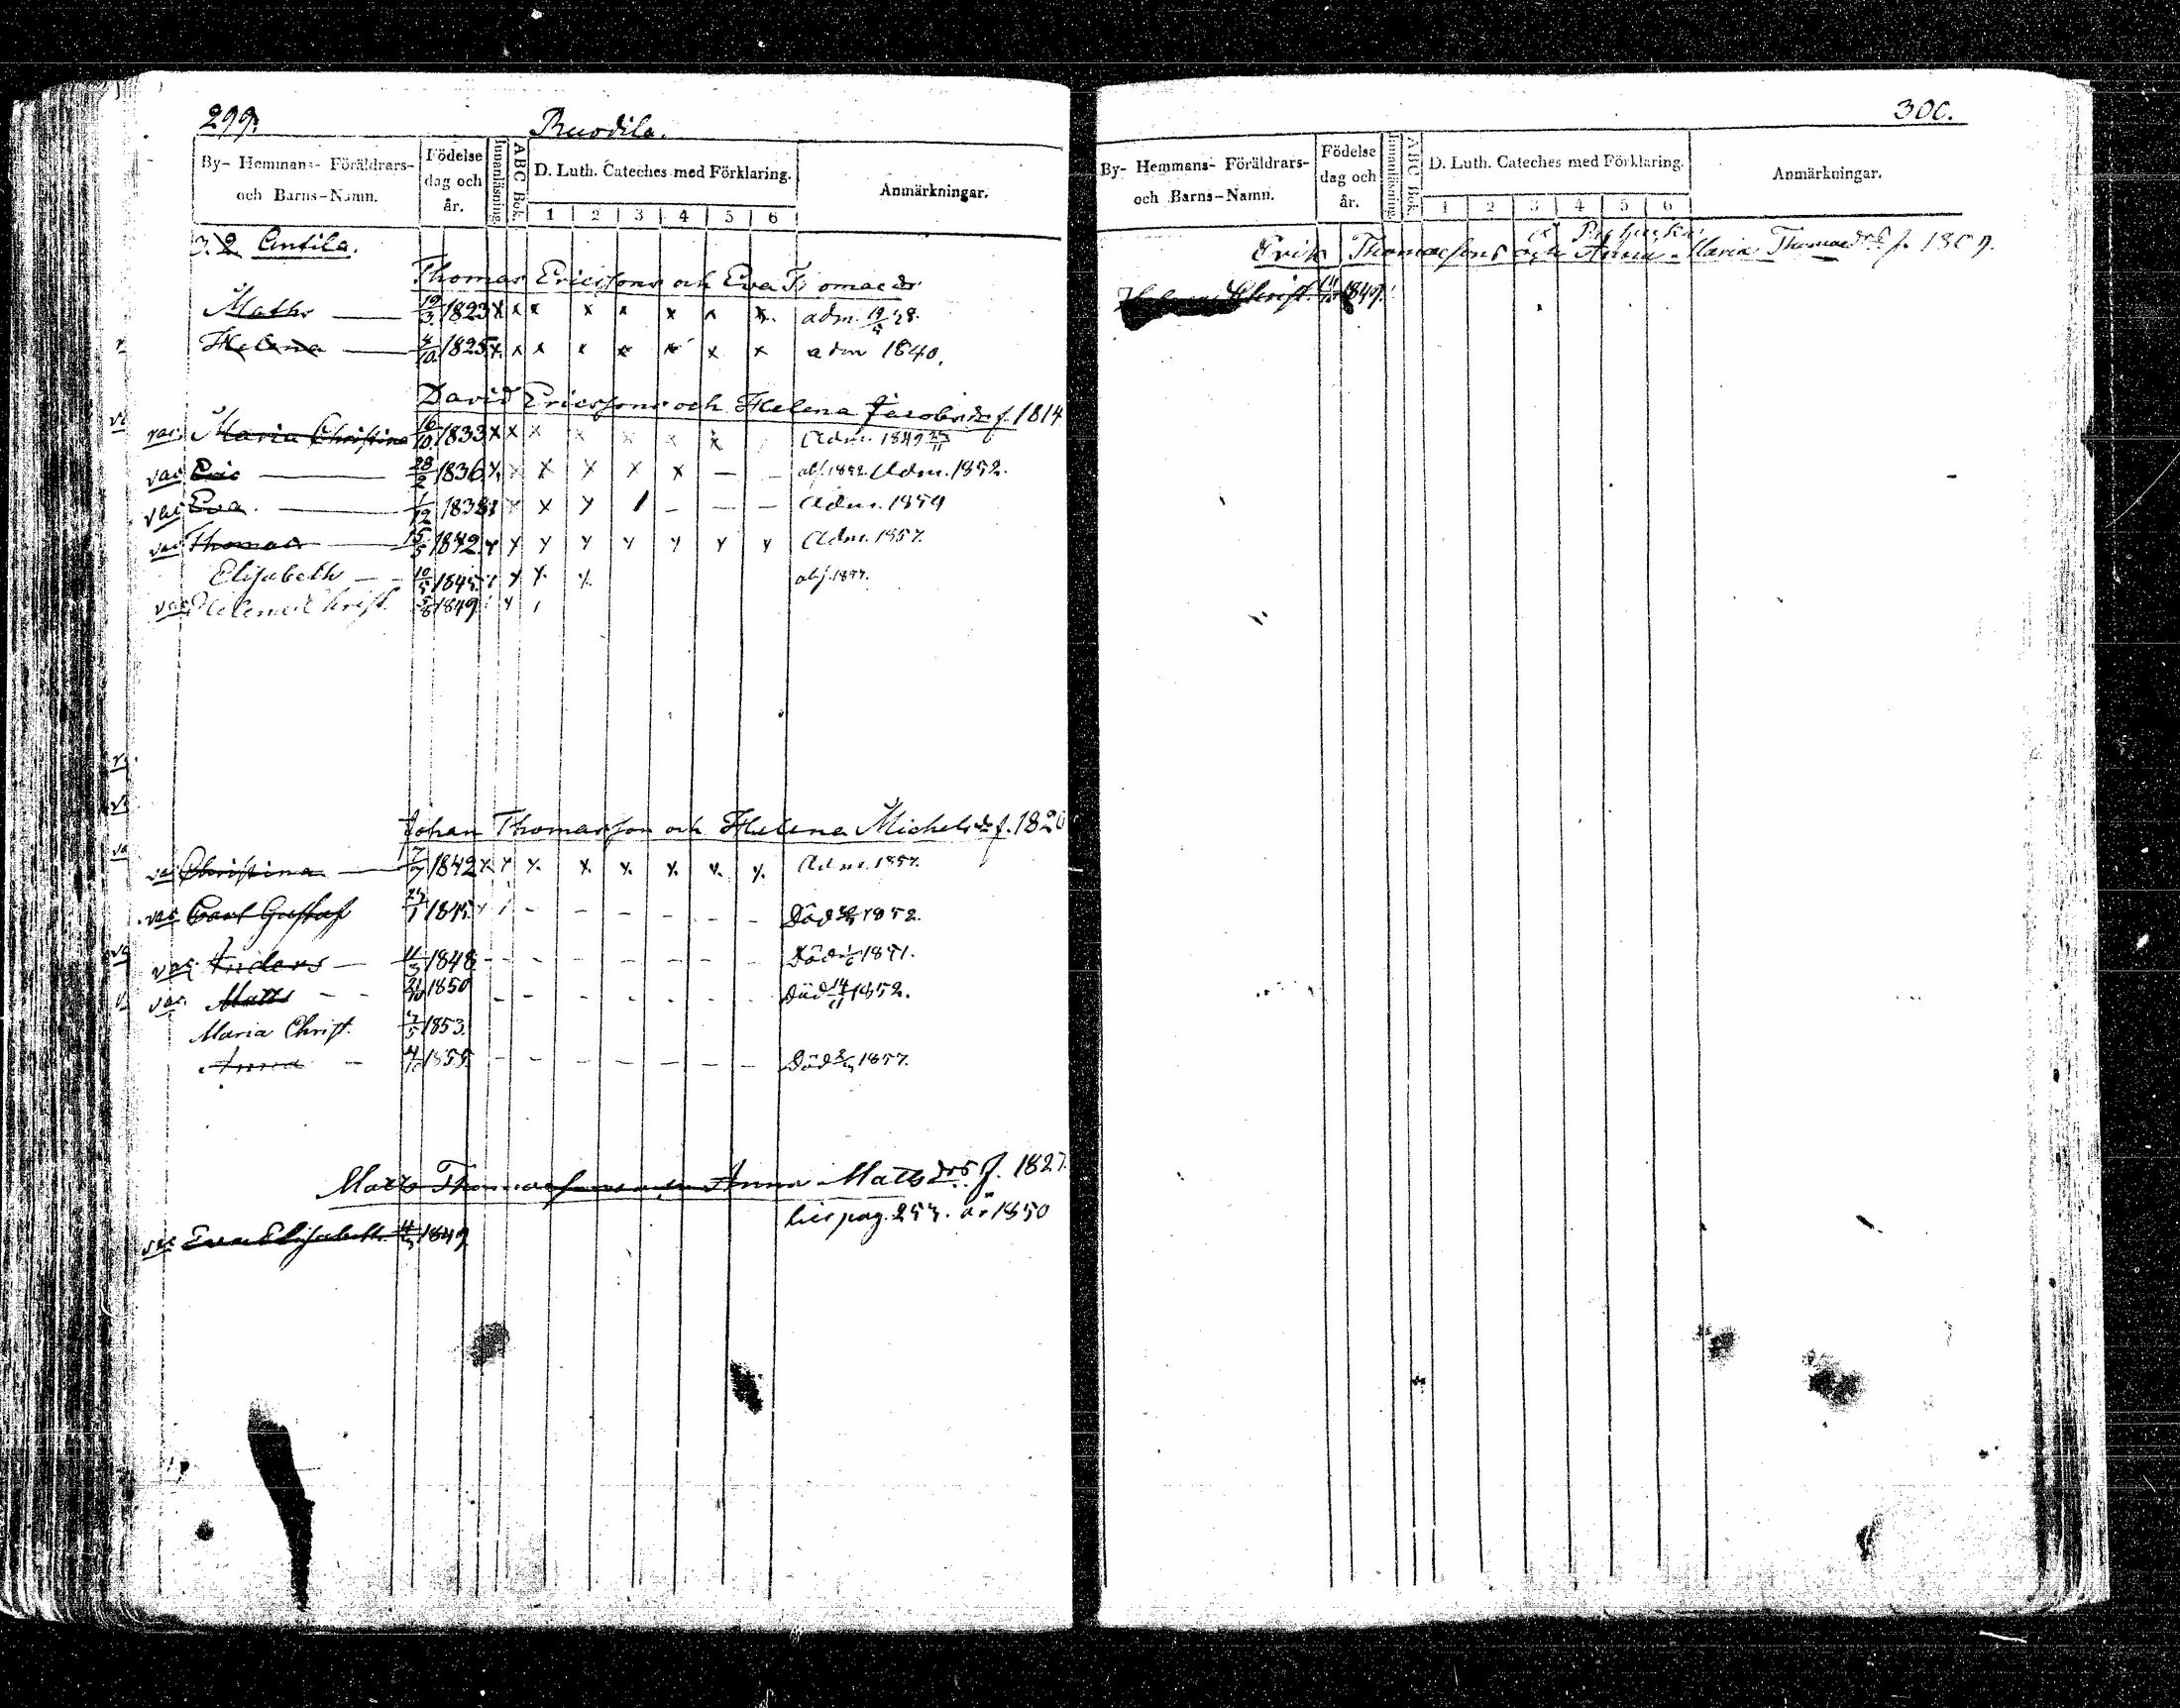 299.
Ruodila.
By- Hemmans- Föräldrars- och Barns-Namn.
Födelse dag och år.
Innanläsning.
ABC Bok.
D. Luth. Cateches med Förklaring.
1 2 3 4 5 6
Anmärkningar.
3. 2 Antila.
Thomas Ericssons och Eva Thomaedr
Maths 19/3 1823 x x x x x x x x adm. 19/4 38.
Helena 4/10 1825 x x x x x x x x adm 1840.
David Ericssons och Helena Jacobsdr f. 1814
vac. Maria Christina 16/10 1833 x x x x x x x Adm. 1849
vac Eric 28/2 1836 x x x x x x — — abs. 1852. Adm. 1852.
vac Eva. 1/12 1838 x x x — — — Adm. 1854
vac Thomas 15/5 1842. Adm. 1857.
Elisabeth 1845.
vac Helena Christ. 1849
Johan Thomasson och Helena Michelsdr f. 1820
vac Christina 7/7 1842 x x x x x x x x Adm. 1857.
vac Carl Gustaf 1845 - - - - - - Död 1852.
vac. Anders — 11/3 1848 - - - - - - - Död 1/6 1851.
vac. Matts - - 1850 - - - - - - - Död 14/11 1852.
Maria Christ. 1853.
Anna - 1855. - - - - - - - - Död 1857.
Matts Thomassons och Anna Matsdrs f. 1827.
lies pag. 257. år 1850
vac Eva Elisabeth 1849
300.
By- Hemmans- Föräldrars- och Barns-Namn.
Födelse dag och år.
Innanläsning.
ABC Bok.
D. Luth. Cateches med Förklaring.
1 2 3 4 5 6
Anmärkningar.
Erik Thomassons och Anna Maria Thomaedrs f.
Christ. 1847.